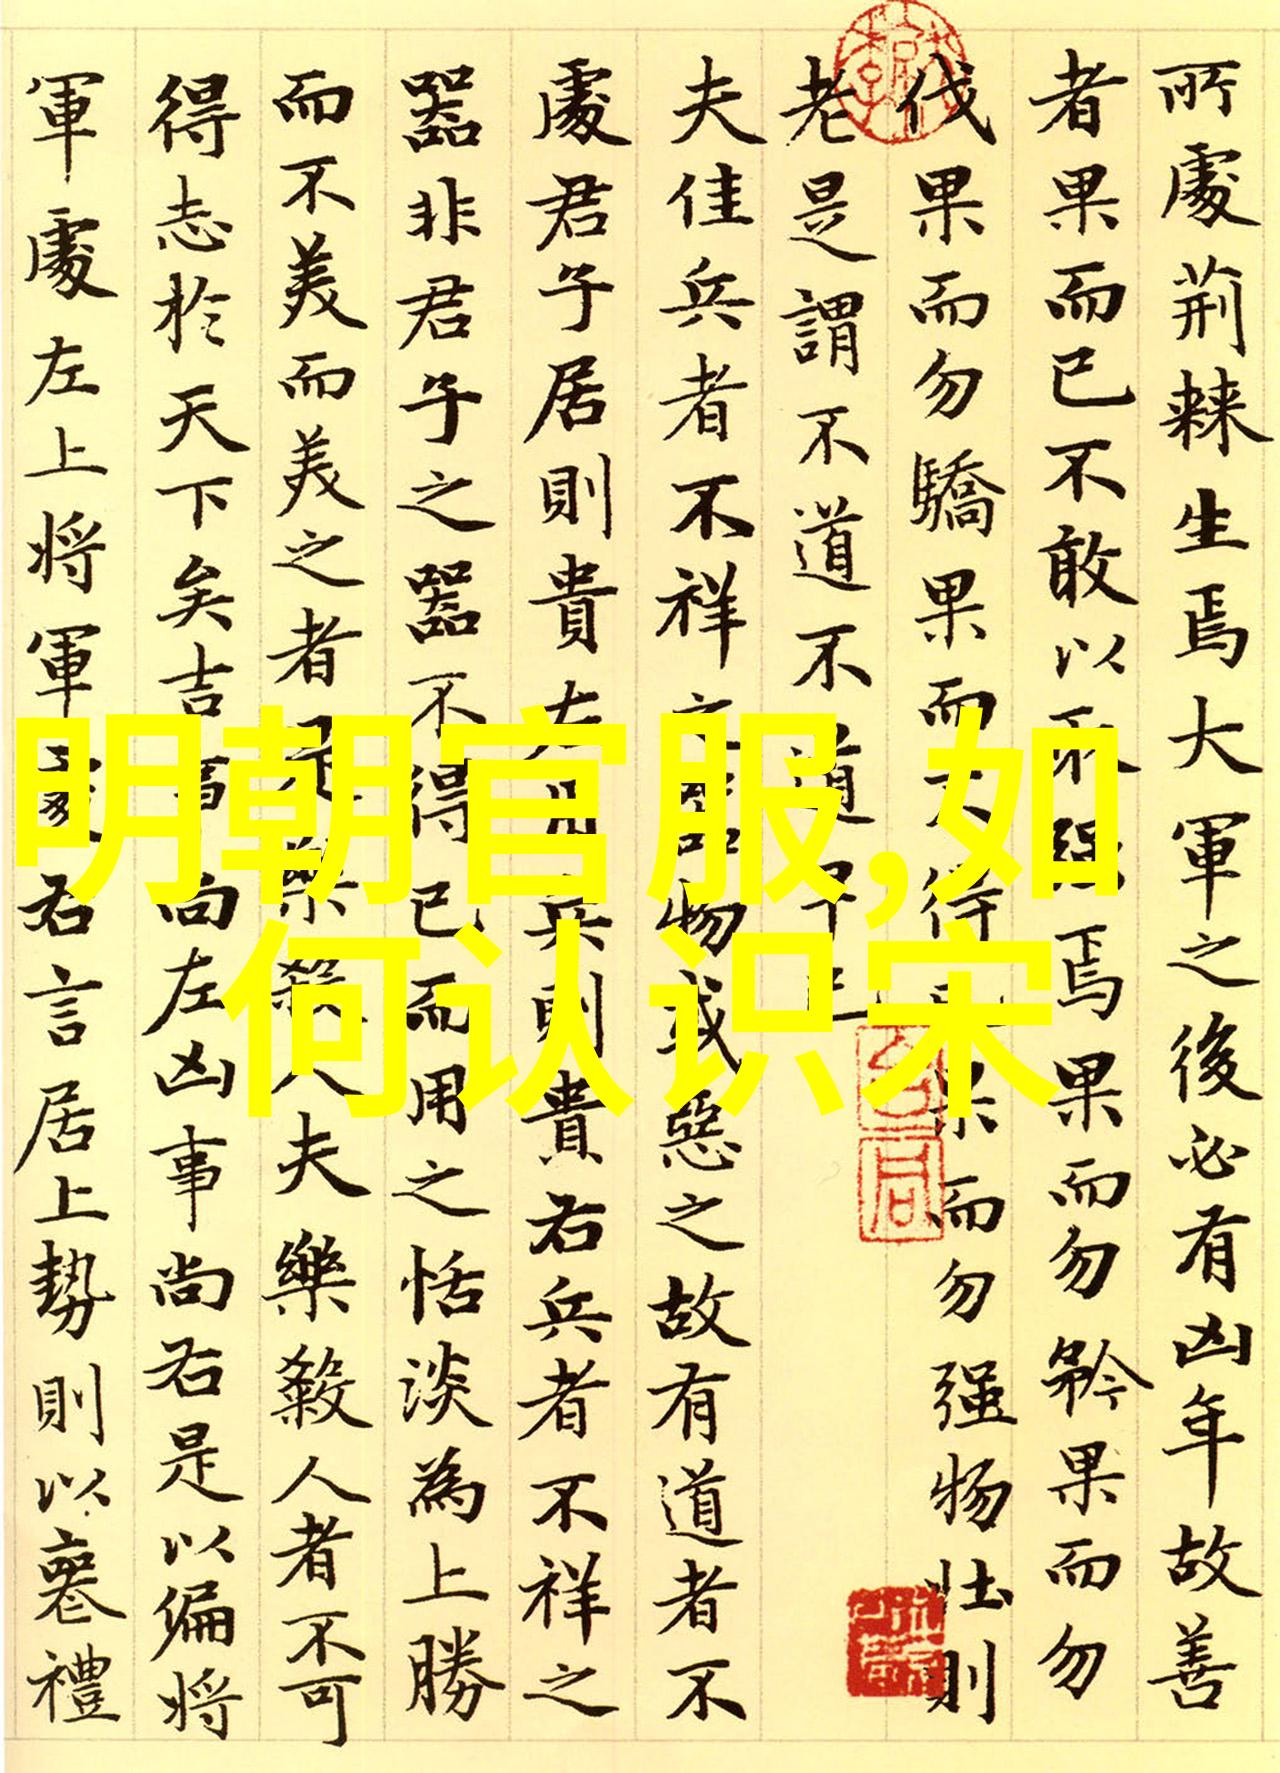 所處荆棘生焉大軍之後必有凶年故善
者果而已不敢以取强焉果而勿矜果而勿
伐果而勿驕果而不得已果而勿强物壮則
老是謂不道不道早已
夫佳兵者不祥之器物或惡之故有道者不
處君子居則貴左用兵則貴右兵者不祥之
器非君子之器不得已而用之恬淡為上勝
而不美而美之者是樂殺人夫樂殺人者不可
得志於天下矣吉事尚左凶事尚右是以偏將
軍處左上将軍處右言居上勢則以喪禮
明朝官服,如
何认识宋